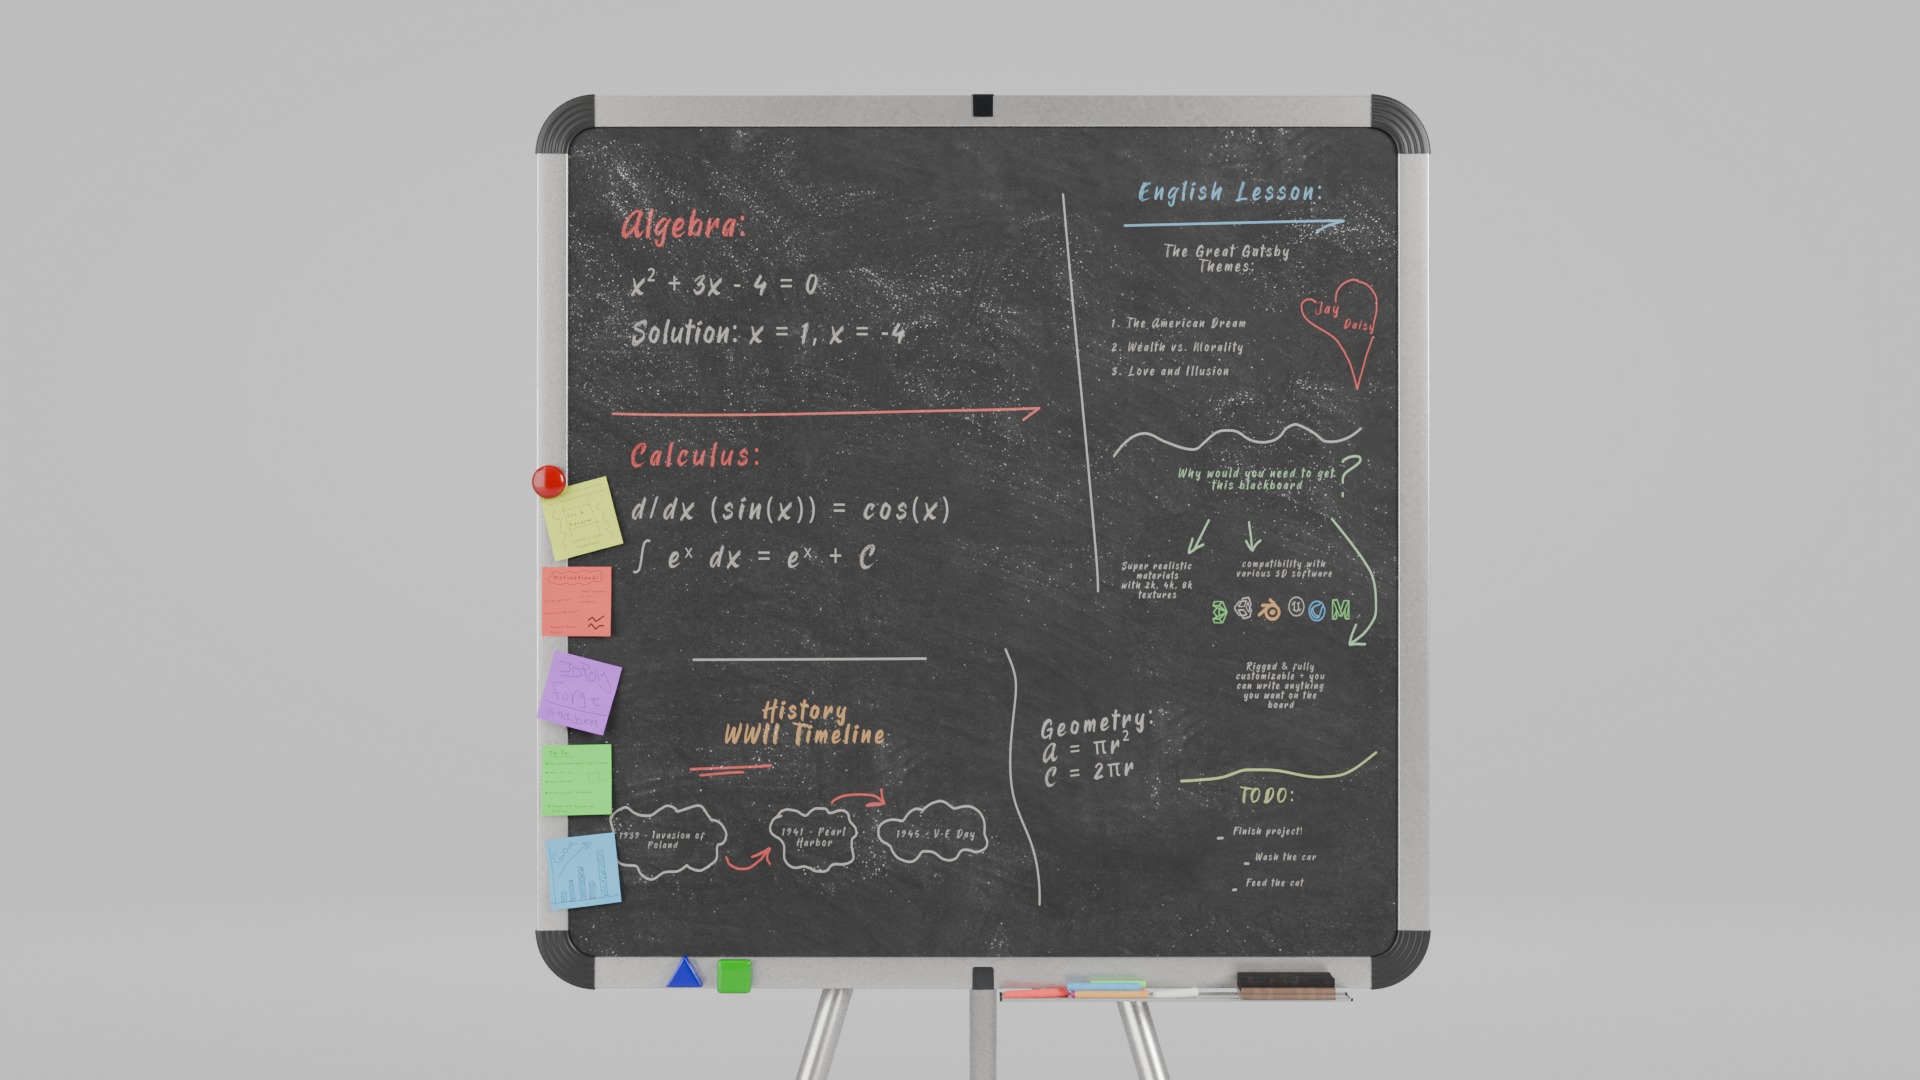 Algebra:
x² + 3x - 4 = 0
Solution: x = 1, x = -4
Calculus:
d/dx (sin(x)) = cos(x)
∫ eˣ dx = eˣ + C
History
WWII Timeline
1939 - Invasion of
Poland
1941 - Pearl
Harbor
1945 - V-E Day
English Lesson:
The Great Gatsby
Themes:
1. The American Dream
2. Wealth vs. Morality
3. Love and Illusion
Jay
Daisy
Why would you need to get
this blackboard ?
Super realistic
materials
with 2k, 4k, 8k
textures
compatibility with
various 3D software
Rigged & fully
customizable + you
can write anything
you want on the
board
Geometry:
A = πr²
C = 2πr
TODO:
- Finish project!
- Wash the car
- Feed the cat
Motivational
Forge
is the best
To-Do: